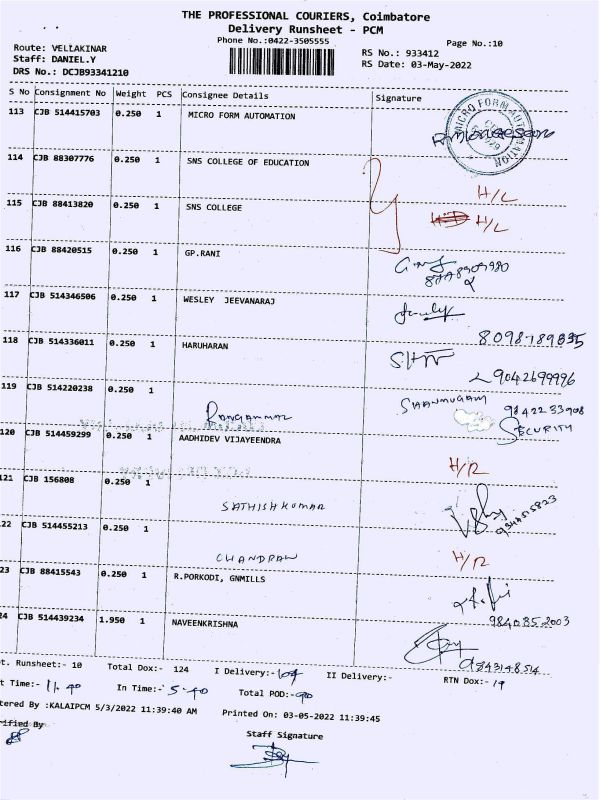 THE PROFESSIONAL COURIERS, Coimbatore
Delivery Runsheet - PCM
Phone No.:0422-3505555
Page No.:10
Route: VELLAKINAR
Staff: DANIEL.Y
DRS No.: DCJB93341210
RS No.: 933412
RS Date: 03-May-2022
S No Consignment No Weight PCS Consignee Details Signature
113 CJB 514415703 0.250 1 MICRO FORM AUTOMATION
MICRO FORM AUTOMATION
114 CJB 88307776 0.250 1 SNS COLLEGE OF EDUCATION H/L
115 CJB 88413820 0.250 1 SNS COLLEGE H/L
116 CJB 88420515 0.250 1 GP.RANI
117 CJB 514346506 0.250 1 WESLEY JEEVANARAJ
8098789835
118 CJB 514336011 0.250 1 HARUHARAN
9042699996
119 CJB 514220238 0.250 1 RANGAMMAL SHANMUGAM 9842233908
SECURITY
120 CJB 514459299 0.250 1 AADHIDEV VIJAYEENDRA H/R
121 CJB 156808 0.250 1 SATHISHKUMAR
22 CJB 514455213 0.250 1 CHANDRAN H/R
23 CJB 88415543 0.250 1 R.PORKODI, GNMILLS
9840352003
24 CJB 514439234 1.950 1 NAVEENKRISHNA
9843148514
t. Runsheet:- 10 Total Dox:- 124 I Delivery:- 104 II Delivery:- RTN Dox:- 19
t Time:- 11.40 In Time:- 5.40 Total POD:- 90
tered By :KALAIPCM 5/3/2022 11:39:40 AM Printed On: 03-05-2022 11:39:45
rified By
Staff Signature